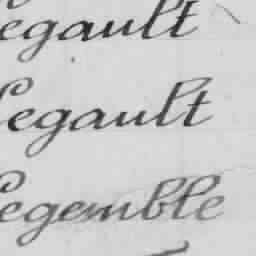 Legault
Legault
Legemble